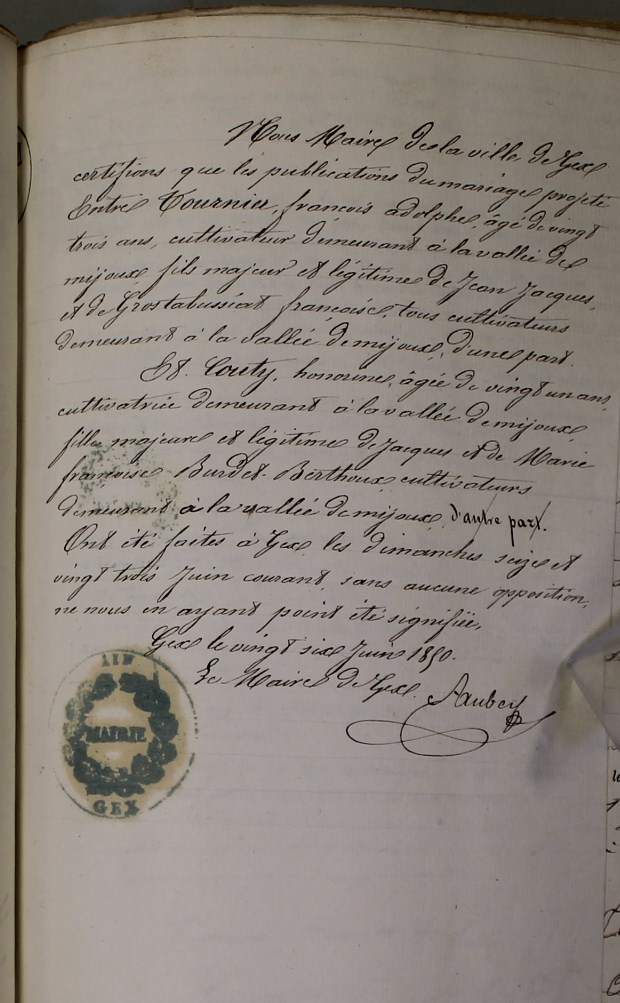 Nous Maire de la ville de Gex
certifions que les publications du mariage projeté
Entre Tournier, françois adolphe, âgé de vingt
trois ans, cultivateur demeurant à la vallée de
mijoux, fils majeur et légitime de Jean Jacques,
et de Grostabussiat françoise, tous cultivateurs
demeurant à la vallée de mijoux, d'une part.
Et Couty, honorine, âgée de vingt un ans,
cultivatrice demeurant à la vallée de mijoux,
fille majeure et légitime de Jacques et de Marie
françoise Burdet-Berthoux, cultivateurs
demeurant à la vallée de mijoux, d'autre part.
Ont été faites à Gex les dimanches seize et
vingt trois Juin courant, sans aucune opposition,
ne nous en ayant point été signifiée,
Gex le vingt six Juin 1850.
Le Maire de Gex.
AIN
MAIRIE
GEX